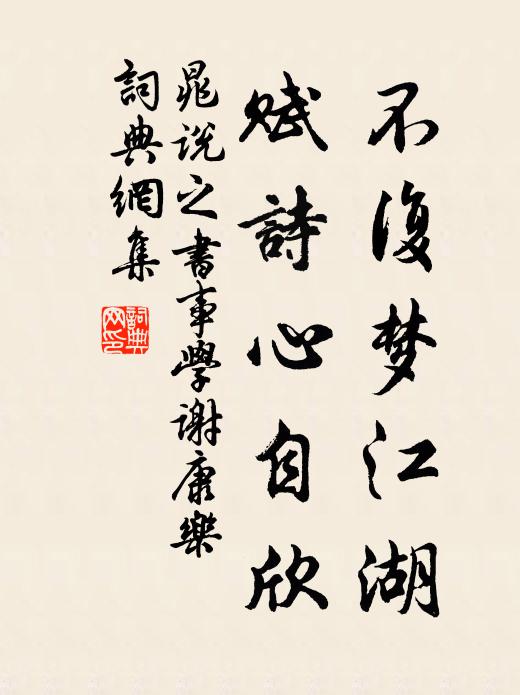 不復梦江湖
賦詩心自欣
晁说之書事學谢康樂
詞典網集
詞典网印